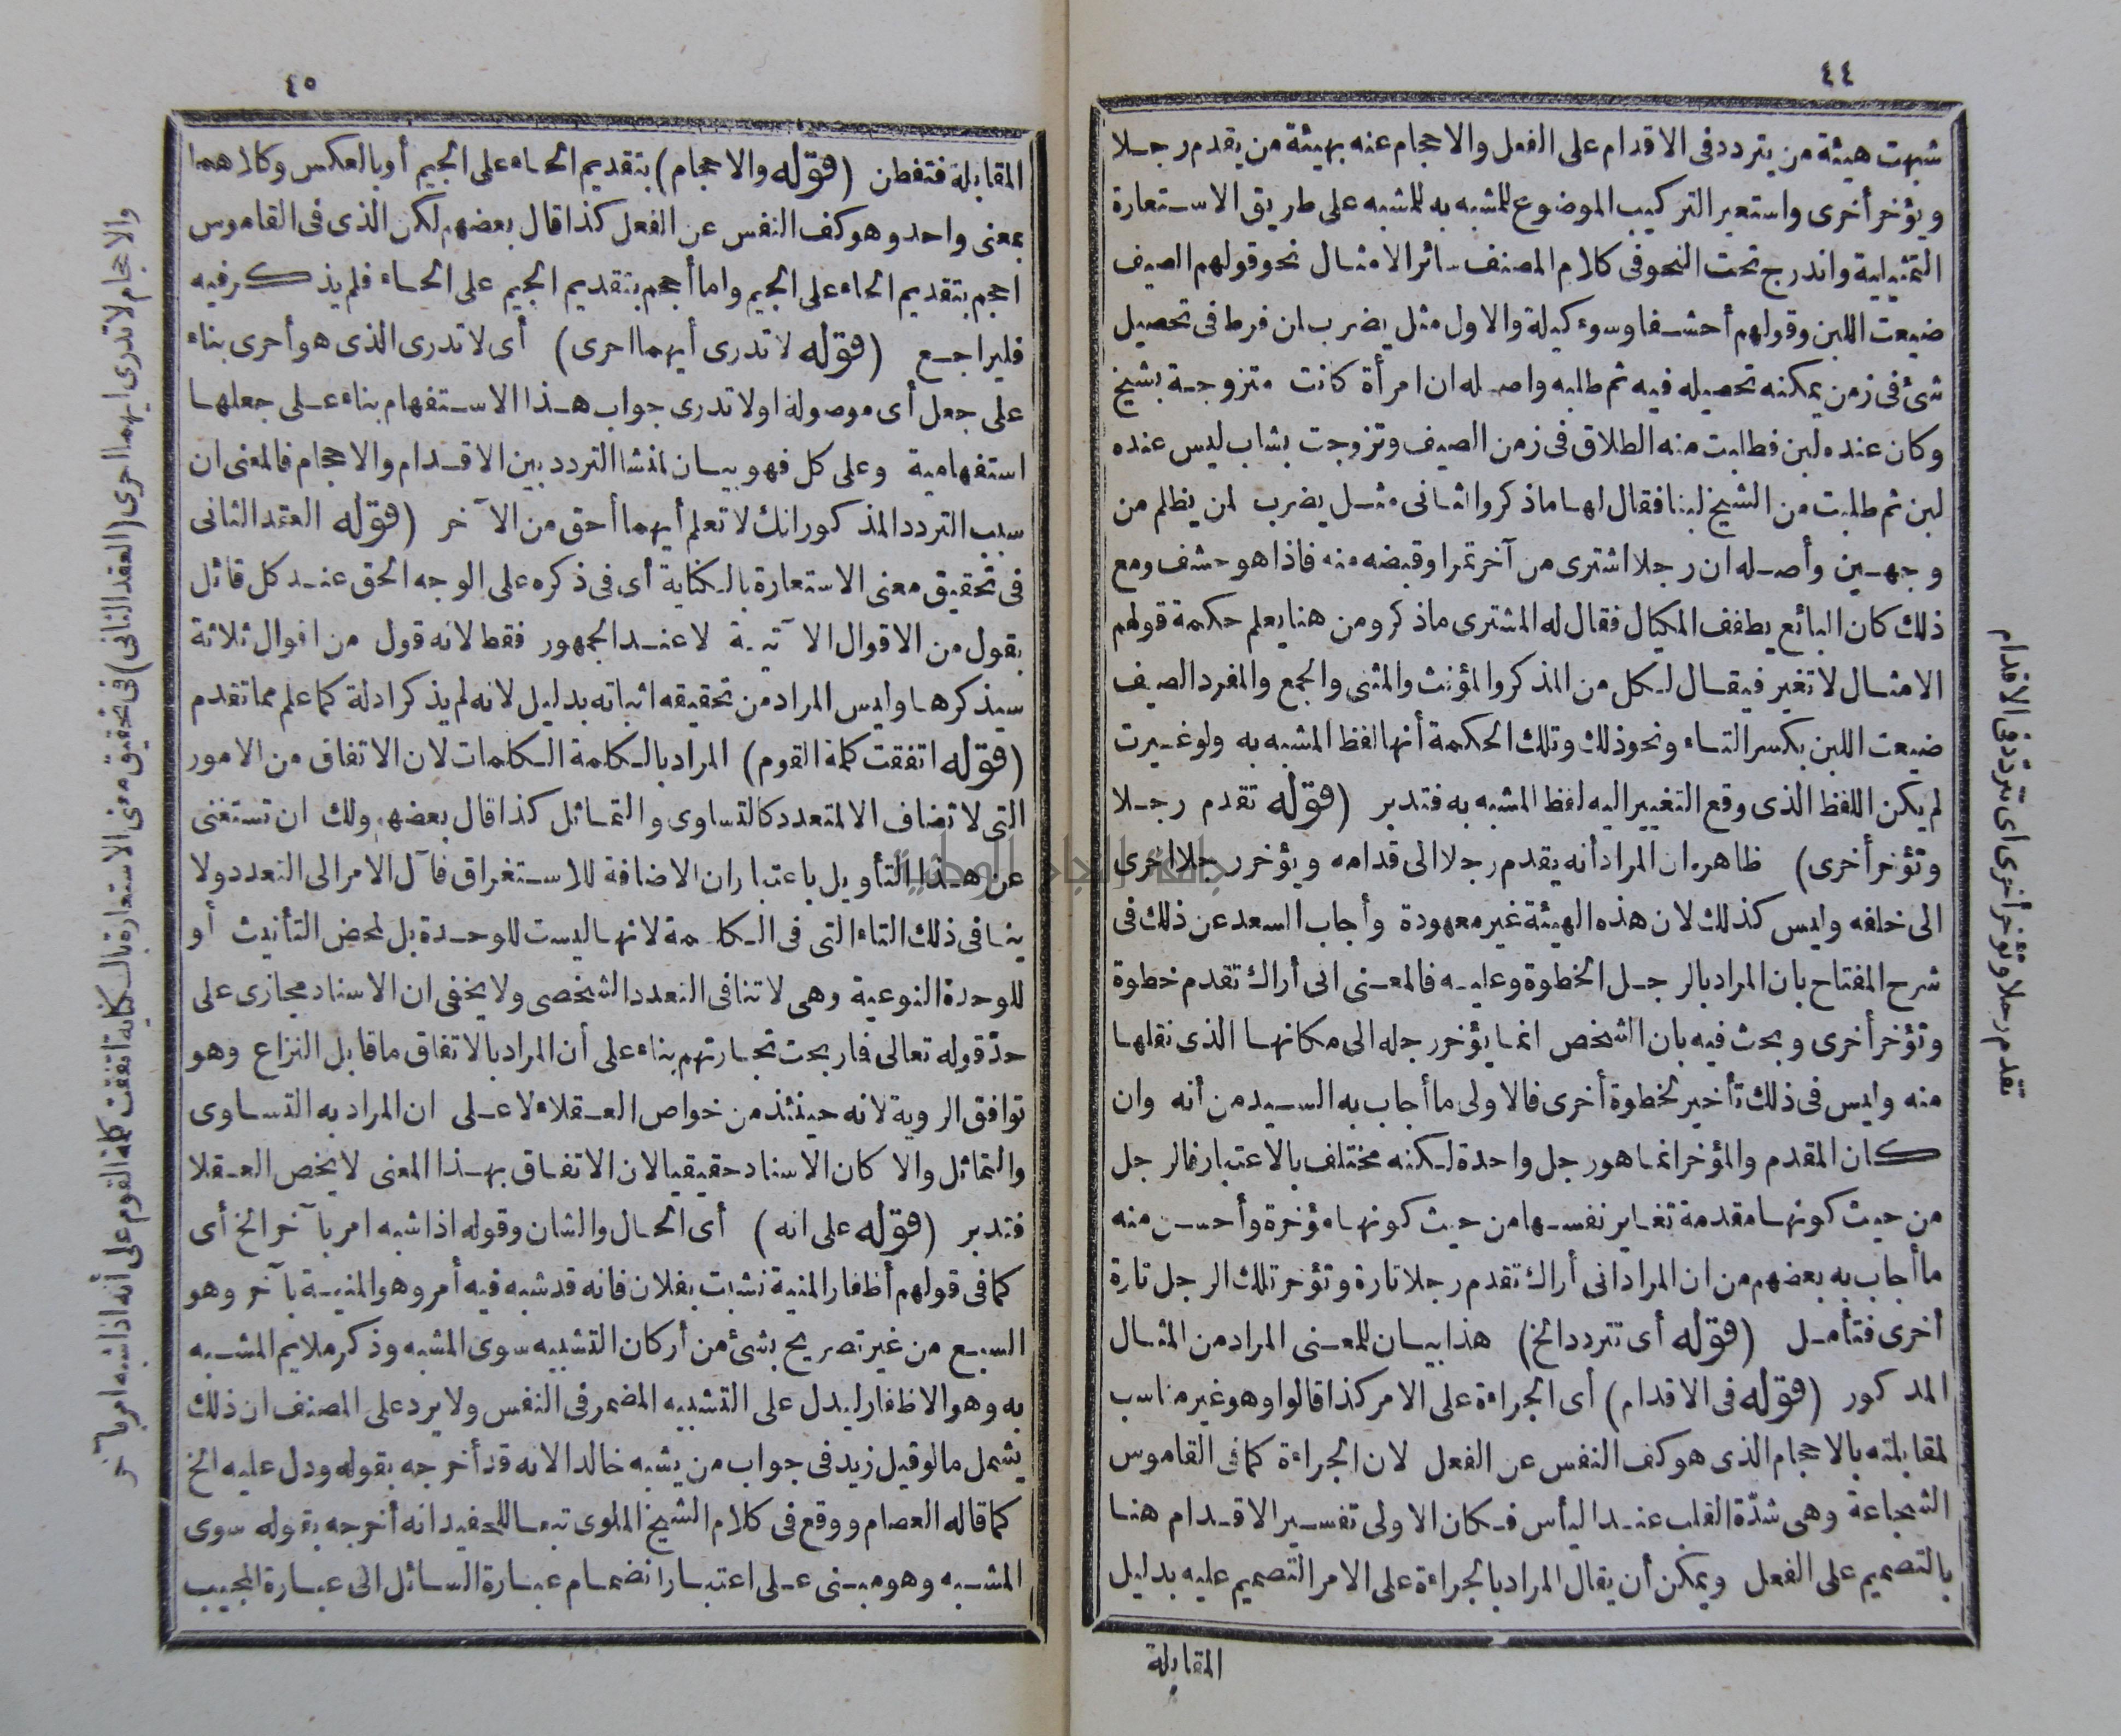 ٤٤
شبهت هيئة من يتردد فى الاقدام على الفعل والاحجام عنه بهيئة من يقدم رجلا
ويؤخر أخرى واستعير التركيب الموضوع للمشبه به للمشبه على طريق الاستعارة
التمثيلية واندرج تحت النحو فى كلام المصنف سائر الامثال نحو قولهم الصيف
ضيعت اللبن وقولهم أحشفا وسوء كيلة والاول مثل يضرب لمن فرط فى تحصيل
شئ فى زمن يمكنه تحصيله فيه ثم طلبه واصله ان امرأة كانت متزوجة بشيخ
وكان عنده لبن فطلبت منه الطلاق فى زمن الصيف وتزوجت بشاب ليس عنده
لبن ثم طلبت من الشيخ لبنا فقال لها ماذكر والثانى مثل يضرب لمن يظلم من
وجهين وأصله ان رجلا اشترى من آخر تمرا وقبضه منه فاذا هو حشف ومع
ذلك كان البائع يطفف المكيال فقال له المشترى ماذكر ومن هنا يعلم حكمة قولهم
الامثال لا تغير فيقال لكل من المذكر والمؤنث والمثنى والجمع والمفرد الصيف
ضيعت اللبن بكسر التاء ونحو ذلك وتلك الحكمة أنها لفظ المشبه به ولو غيرت
لم يكن اللفظ الذى وقع التغيير اليه لفظ المشبه به فتدبر (قوله تقدم رجلا
وتؤخر أخرى) ظاهره ان المراد أنه يقدم رجلا الى قدامه ويؤخر رجلا اخرى
الى خلفه وليس كذلك لان هذه الهيئة غير معهودة وأجاب السعد عن ذلك فى
شرح المفتاح بان المراد بالرجل الخطوة وعليه فالمعنى انى أراك تقدم خطوة
وتؤخر أخرى وبحث فيه بان الشخص انما يؤخر رجله الى مكانها الذى نقلها
منه وليس فى ذلك تأخير لخطوة أخرى فالاولى ما أجاب به السيد من أنه وان
كان المقدم والمؤخر انما هو رجل واحدة لكنه مختلف بالاعتبار فالرجل
من حيث كونها مقدمة تغاير نفسها من حيث كونها مؤخرة وأحسن منه
ما أجاب به بعضهم من ان المراد انى أراك تقدم رجلا تارة وتؤخر تلك الرجل تارة
أخرى فتأمل (قوله أى تتردد الخ) هذا بيان للمعنى المراد من المثال
المذكور (قوله فى الاقدام) أى الجراءة على الامر كذا قالوا وهو غير مناسب
لمقابلته بالاحجام الذى هو كف النفس عن الفعل لان الجراءة كما فى القاموس
الشجاعة وهى شدّة القلب عند البأس فكان الاولى تفسير الاقدام هنا
بالتصميم على الفعل ويمكن أن يقال المراد بالجراءة على الامر التصميم عليه بدليل
المقابلة
تقدم رجلا وتؤخر أخرى اى تتردد فى الاقدام
٤٥
المقابلة فتفطن (قوله والاحجام) بتقديم الحاء على الجيم أو بالعكس وكلاهما
بمعنى واحد وهو كف النفس عن الفعل كذا قال بعضهم لكن الذى فى القاموس
احجم بتقديم الحاء على الجيم واما أجحم بتقديم الجيم على الحاء فلم يذكر فيه
فليراجع (قوله لا تدرى أيهما احرى) أى لا تدرى الذى هو أحرى بناء
على جعل أى موصولة اولا تدرى جواب هذا الاستفهام بناء على جعلها
استفهامية وعلى كل فهو بيان لمنشا التردد بين الاقدام والاحجام فالمعنى ان
سبب التردد المذكور انك لا تعلم أيهما أحق من الآخر (قوله العقد الثانى
فى تحقيق معنى الاستعارة بالكناية أى فى ذكره على الوجه الحق عند كل قائل
بقول من الاقوال الآتية لا عند الجمهور فقط لانه قول من اقوال ثلاثة
سيذكرها وليس المراد من تحقيقه اثباته بدليل لانه لم يذكر ادلة كما علم مما تقدم
(قوله اتفقت كلمة القوم) المراد بالكلمة الكلمات لان الاتفاق من الامور
التى لا تضاف الا لمتعدد كالتساوى والتماثل كذا قال بعضهم ولك ان تستغنى
عن هذا التأويل باعتبار ان الاضافة للاستغراق فآل الامر الى التعدد ولا
ينافى ذلك التاء التى فى الكلمة لانها ليست للوحدة بل لمحض التأنيث أو
للوحدة النوعية وهى لا تنافى التعدد الشخصى ولا يخفى ان الاسناد مجازى على
حدّ قوله تعالى فما ربحت تجارتهم بناء على أن المراد بالاتفاق ما قابل النزاع وهو
توافق الروية لانه حينئذ من خواص العقلاء لا على ان المراد به التساوى
والتماثل والا كان الاسناد حقيقيا لان الاتفاق بهذا المعنى لا يخص العقلا
فتدبر (قوله على انه) أى الحال والشان وقوله اذا شبه امر بآخر الخ أى
كما فى قولهم أظفار المنية نشبت بفلان فانه قد شبه فيه أمر وهو المنية بآخر وهو
السبع من غير تصريح بشئ من أركان التشبيه سوى المشبه وذكر ملايم المشبه
به وهو الاظفار ليدل على التشبيه المضمر فى النفس ولا يرد على المصنف ان ذلك
يشمل ما لو قيل زيد فى جواب من يشبه خالدا لانه قد أخرجه بقوله ودل عليه الخ
كما قاله العصام ووقع فى كلام الشيخ الملوى تبعا للحفيد انه أخرجه بقوله سوى
المشبه وهو مبنى على اعتبار انضمام عبارة السائل الى عبارة المجيب
والاحجام لا تدرى ايهما احرى (العقد الثانى) فى تحقيق معنى الاستعارة بالكناية اتفقت كلمة القوم على أنه اذا شبه امر بآخر
جامعة النجاح الوطنية